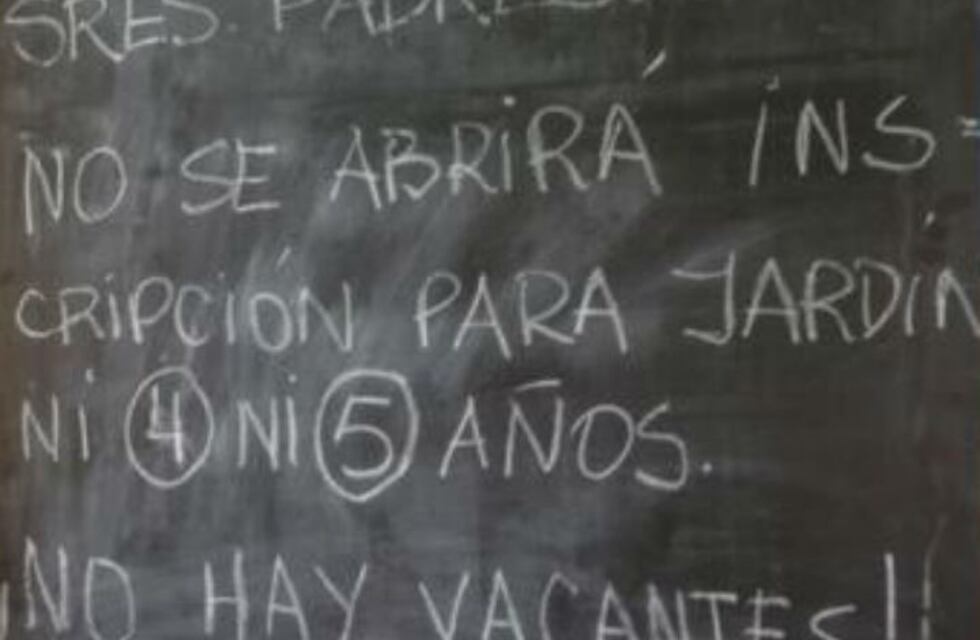 SRES. PADRES:
NO SE ABRIRÁ INS=
CRIPCIÓN PARA JARDÍN
NI 4 NI 5 AÑOS.
¡NO HAY VACANTES!!